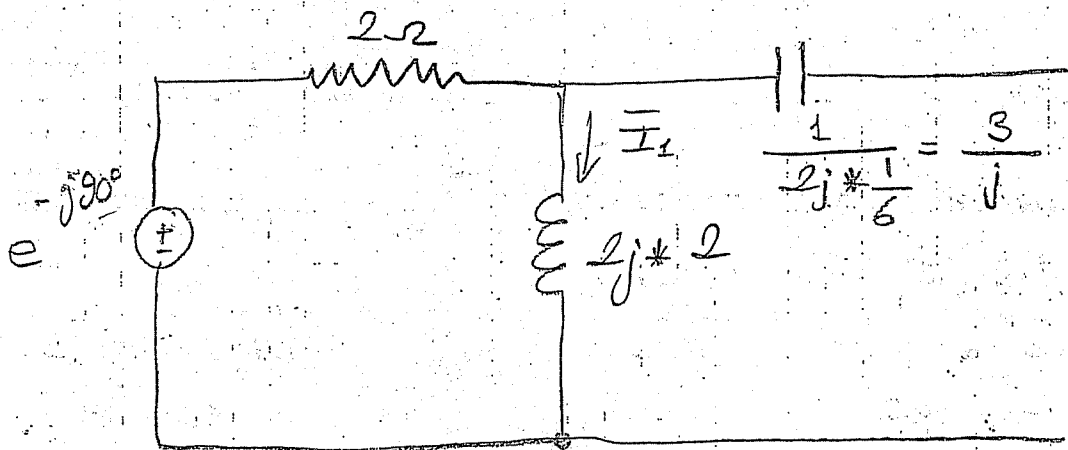 2Ω
e^{-j90°}
+
-
Ī₁
2j * 2
1/(2j * 1/6) = 3/j